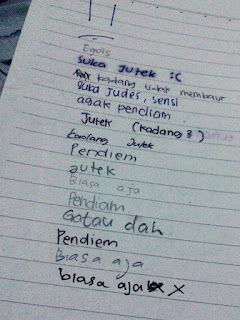 Egois
suka jutek :(
kadang tidak membaur
suka judes, sensi
agak pendiam.
Jutek (kadang2)
kadang jutek
Pendiem
jutek
Biasa aja
Pendiam
Gatau dah
Pendiem
Biasa aja
biasa aja X